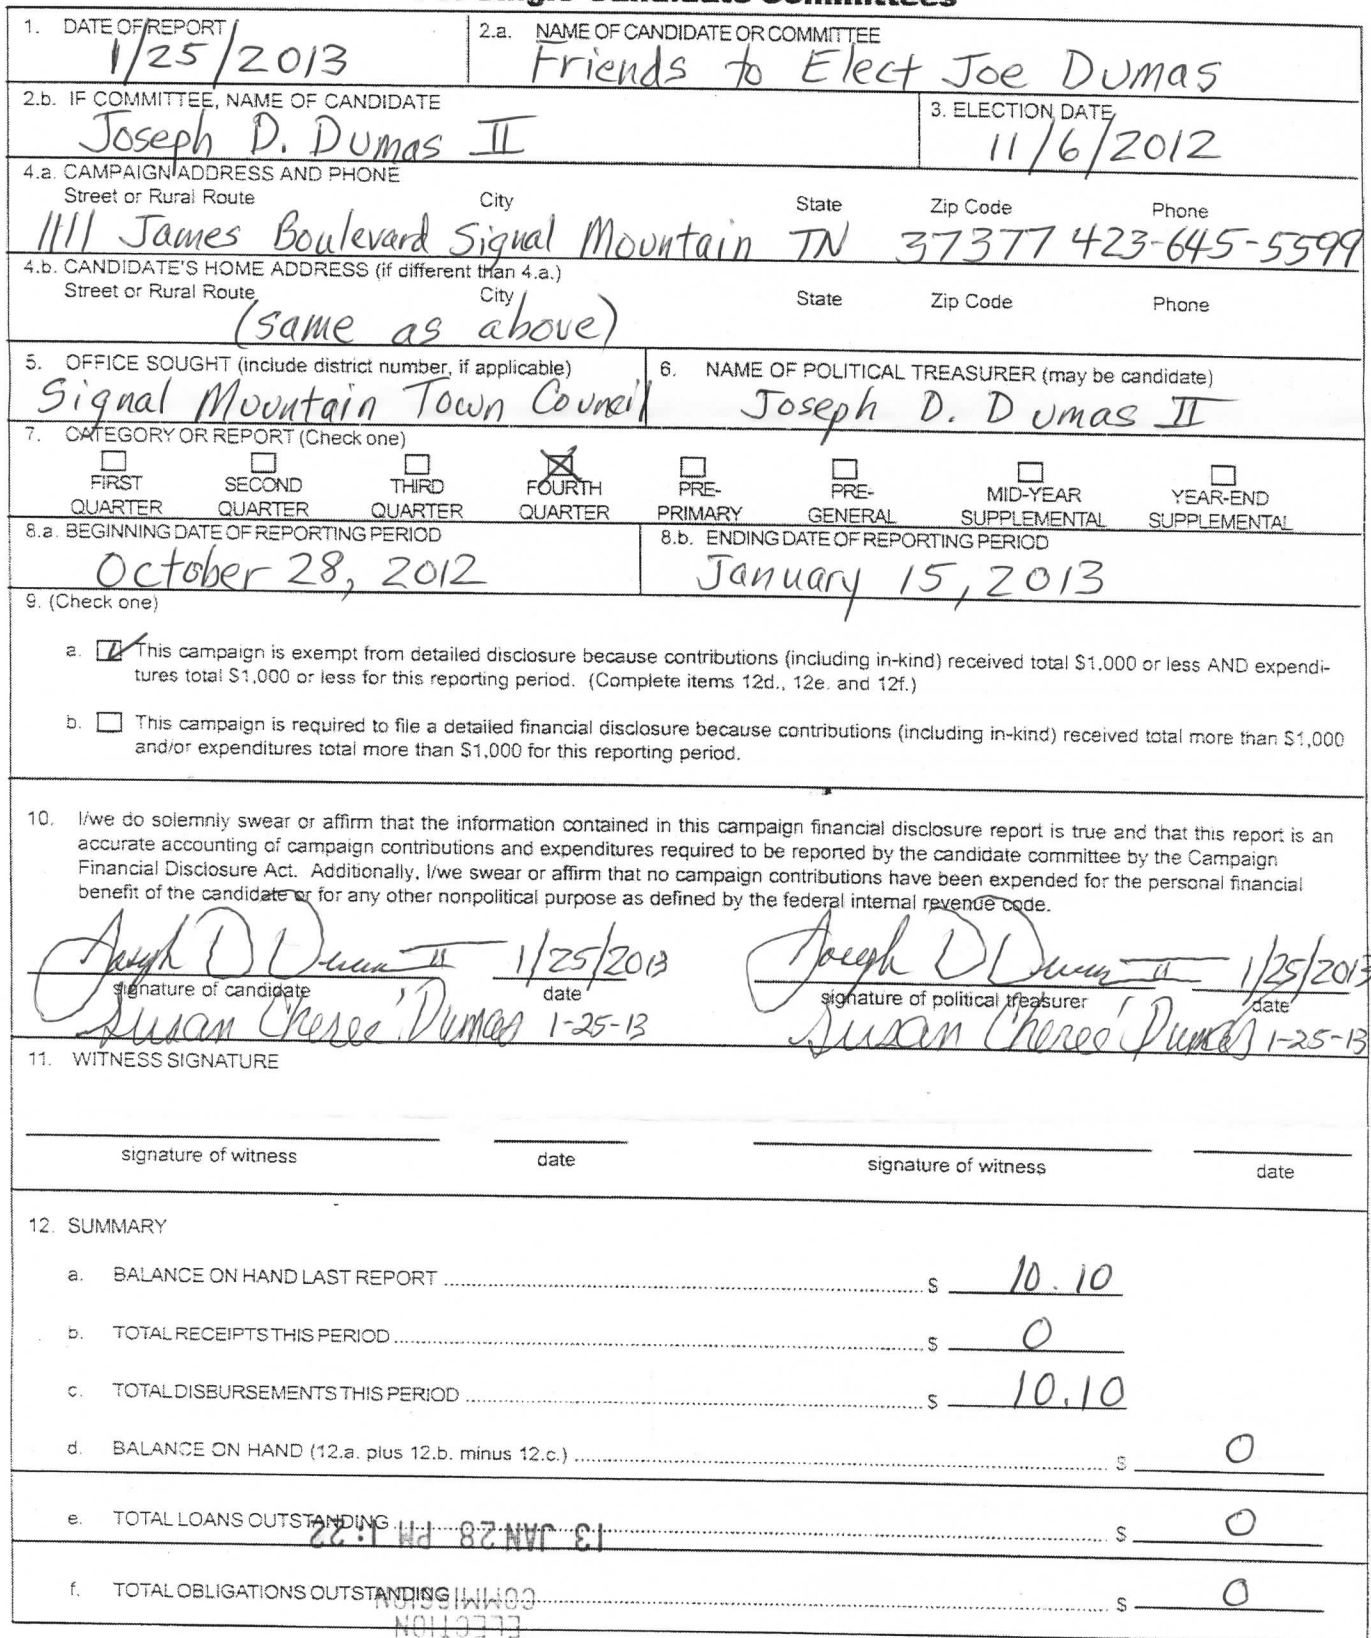 Single Candidate Committees
1. DATE OF REPORT
1/25/2013
2.a. NAME OF CANDIDATE OR COMMITTEE
Friends to Elect Joe Dumas
2.b. IF COMMITTEE, NAME OF CANDIDATE
Joseph D. Dumas II
3. ELECTION DATE
11/6/2012
4.a. CAMPAIGN ADDRESS AND PHONE
Street or Rural Route City State Zip Code Phone
1111 James Boulevard Signal Mountain TN 37377 423-645-5599
4.b. CANDIDATE'S HOME ADDRESS (if different than 4.a.)
Street or Rural Route City State Zip Code Phone
(same as above)
5. OFFICE SOUGHT (include district number, if applicable)
Signal Mountain Town Council
6. NAME OF POLITICAL TREASURER (may be candidate)
Joseph D. Dumas II
7. CATEGORY OR REPORT (Check one)
FIRST QUARTER
SECOND QUARTER
THIRD QUARTER
FOURTH QUARTER
PRE-PRIMARY
PRE-GENERAL
MID-YEAR SUPPLEMENTAL
YEAR-END SUPPLEMENTAL
8.a. BEGINNING DATE OF REPORTING PERIOD
October 28, 2012
8.b. ENDING DATE OF REPORTING PERIOD
January 15, 2013
9. (Check one)
a. This campaign is exempt from detailed disclosure because contributions (including in-kind) received total $1,000 or less AND expendi-
tures total $1,000 or less for this reporting period. (Complete items 12d., 12e. and 12f.)
b. This campaign is required to file a detailed financial disclosure because contributions (including in-kind) received total more than $1,000
and/or expenditures total more than $1,000 for this reporting period.
10. I/we do solemnly swear or affirm that the information contained in this campaign financial disclosure report is true and that this report is an
accurate accounting of campaign contributions and expenditures required to be reported by the candidate committee by the Campaign
Financial Disclosure Act. Additionally, I/we swear or affirm that no campaign contributions have been expended for the personal financial
benefit of the candidate or for any other nonpolitical purpose as defined by the federal internal revenue code.
Joseph D Dumas II 1/25/2013 Joseph D Dumas II 1/25/2013
signature of candidate date signature of political treasurer date
Susan Cheree' Dumas 1-25-13 Susan Cheree' Dumas 1-25-13
11. WITNESS SIGNATURE
signature of witness date signature of witness date
12. SUMMARY
a. BALANCE ON HAND LAST REPORT $ 10.10
b. TOTAL RECEIPTS THIS PERIOD $ 0
c. TOTAL DISBURSEMENTS THIS PERIOD $ 10.10
d. BALANCE ON HAND (12.a. plus 12.b. minus 12.c.) $ 0
e. TOTAL LOANS OUTSTANDING $ 0
13 JAN 28 PM 1:22
f. TOTAL OBLIGATIONS OUTSTANDING $ 0
COMMISSION
ELECTION